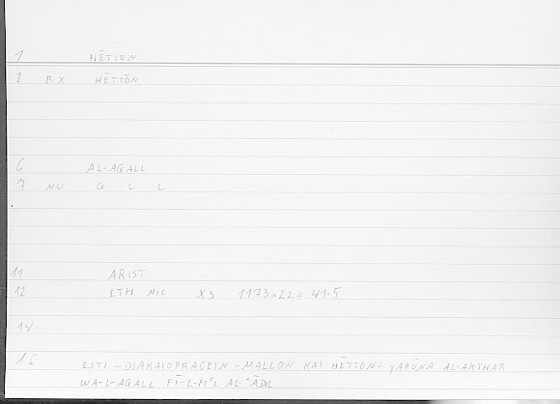 1 HĒTTON
2 RX HĒTTŌN
6 AL-AQALL
7 NU Q L L
11 ARIST
12 ETH NIC XS 1173a22 = 41.5
14
16 ESTI ... DIAKAIOPRAGEIN - MALLON KAI HĒTTON: YAKŪNA AL-AKTHAR
WA-L-AQALL FĪ-L-FIʿL AL-ʿĀDIL